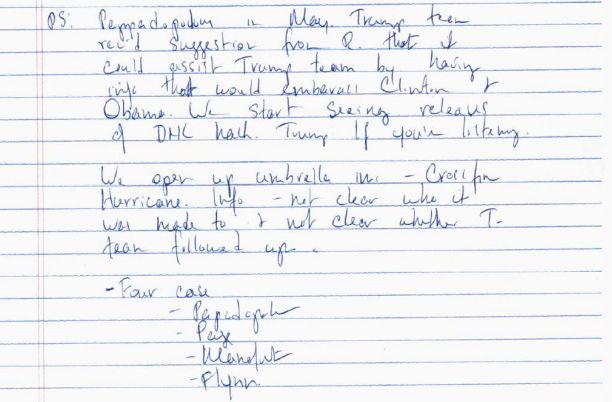 PS: Pappadopodum in May. Trump team
rec'd suggestion from R. that it
could assist Trump team by having
info that would embarass Clinton &
Obama. We start seeing releases
of DNC hack. Trump If you're listening.
We open up umbrella inv. - Crossfire
Hurricane. Info - not clear who it
was made to & not clear whether T-
team followed up.
- Four case
- Papadoph
- Page
- Manafort
- Flynn